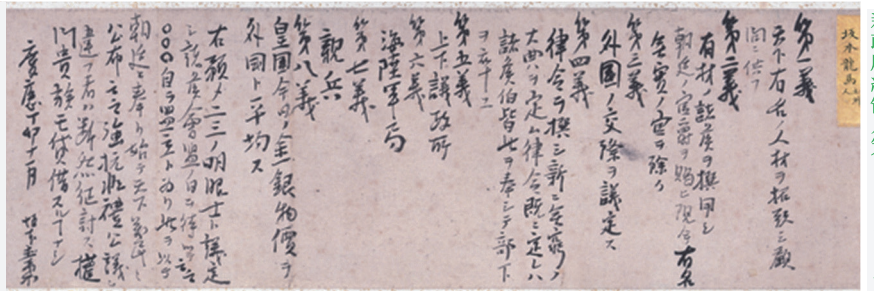 坂本龍馬
第一義
天下有名ノ人材ヲ招致シ顧
問ニ供フ
第二義
有材ノ諸侯ヲ撰用シ
朝廷ノ官爵ヲ賜ヒ現今有名
無実ノ官ヲ除ク
第三義
外国ノ交際ヲ議定ス
第四義
律令ヲ撰シ新ニ無窮ノ
大典ヲ定ム律令既ニ定レハ
諸侯伯皆此ヲ奉シテ部下
ヲ率ユ
第五義
上下議政所
第六義
海陸軍局
第七義
親兵
第八義
皇国今日ノ金銀物価ヲ
外国ト平均ス
右預メ二三ノ明眼士ト議定
シ諸侯会盟ノ日ヲ待ツテ云云
○○○自ラ盟主ト為リ此ヲ以テ
朝廷ニ奉リ始テ天下萬民ニ
公布云云強抗非禮公議ニ
違フ者ハ断然征討ス權
門貴族モ貸借スルコトナシ
慶應丁卯十一月 坂本直柔